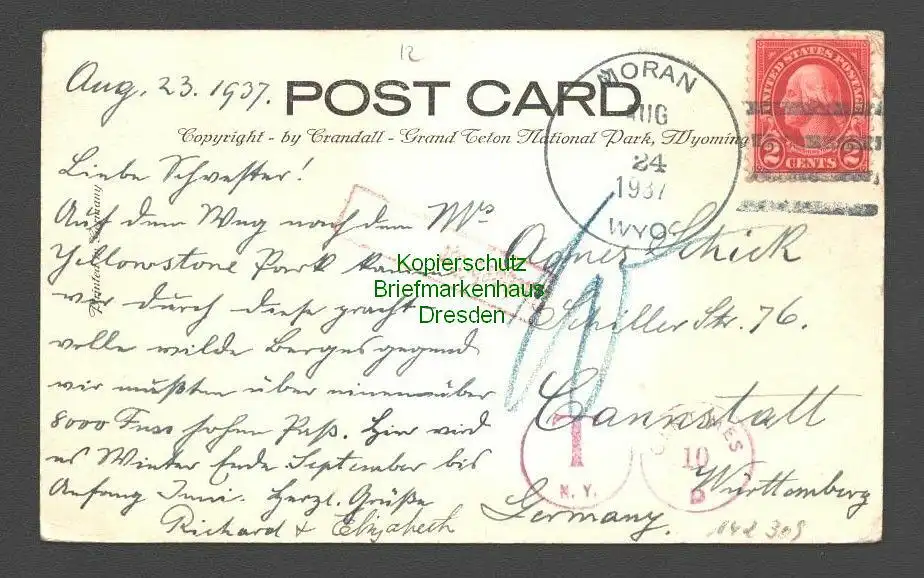 12
Aug. 23. 1937.
POST CARD
Copyright - by Crandall - Grand Teton National Park, Wyoming
MORAN
AUG
24
1937
WYO.
UNITED STATES POSTAGE
2 CENTS 2
Printed in Germany
Liebe Schwester!
Auf dem Weg nach dem
Yellowstone Park
wir durch diese pracht
volle wilde Bergesgegend
wir mußten über einen über
8000 Fuss hohen Paß. Hier wird
es Winter Ende September bis
Anfang Juni. Herzl. Grüße
Richard & Elizabeth
Mrs
Agnes Schick
Schiller Str. 76.
Cannstatt
Württemberg
Germany.
Kopierschutz
Briefmarkenhaus
Dresden
T
N.Y.
CENTIMES
10